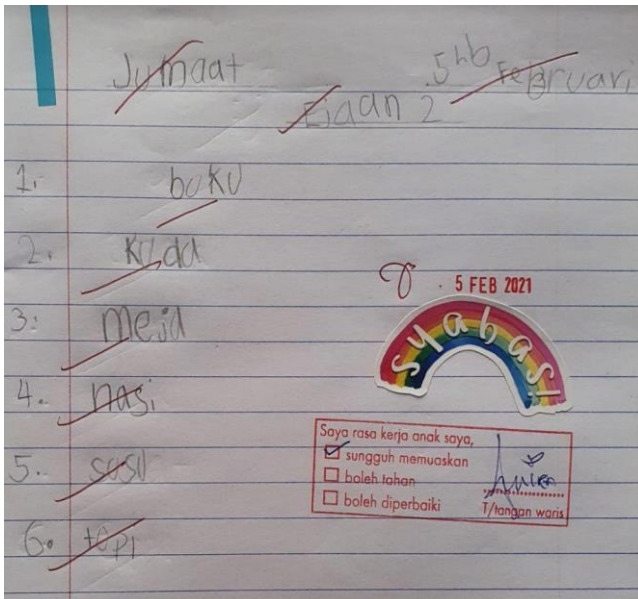 Jumaat 5hb Februari
Ejaan 2
1. buku
2. kuda
3. meja
4. nasi
5. susu
6. tepi
5 FEB 2021
syabas!
Saya rasa kerja anak saya,
sungguh memuaskan
boleh tahan
boleh diperbaiki
T/tangan waris